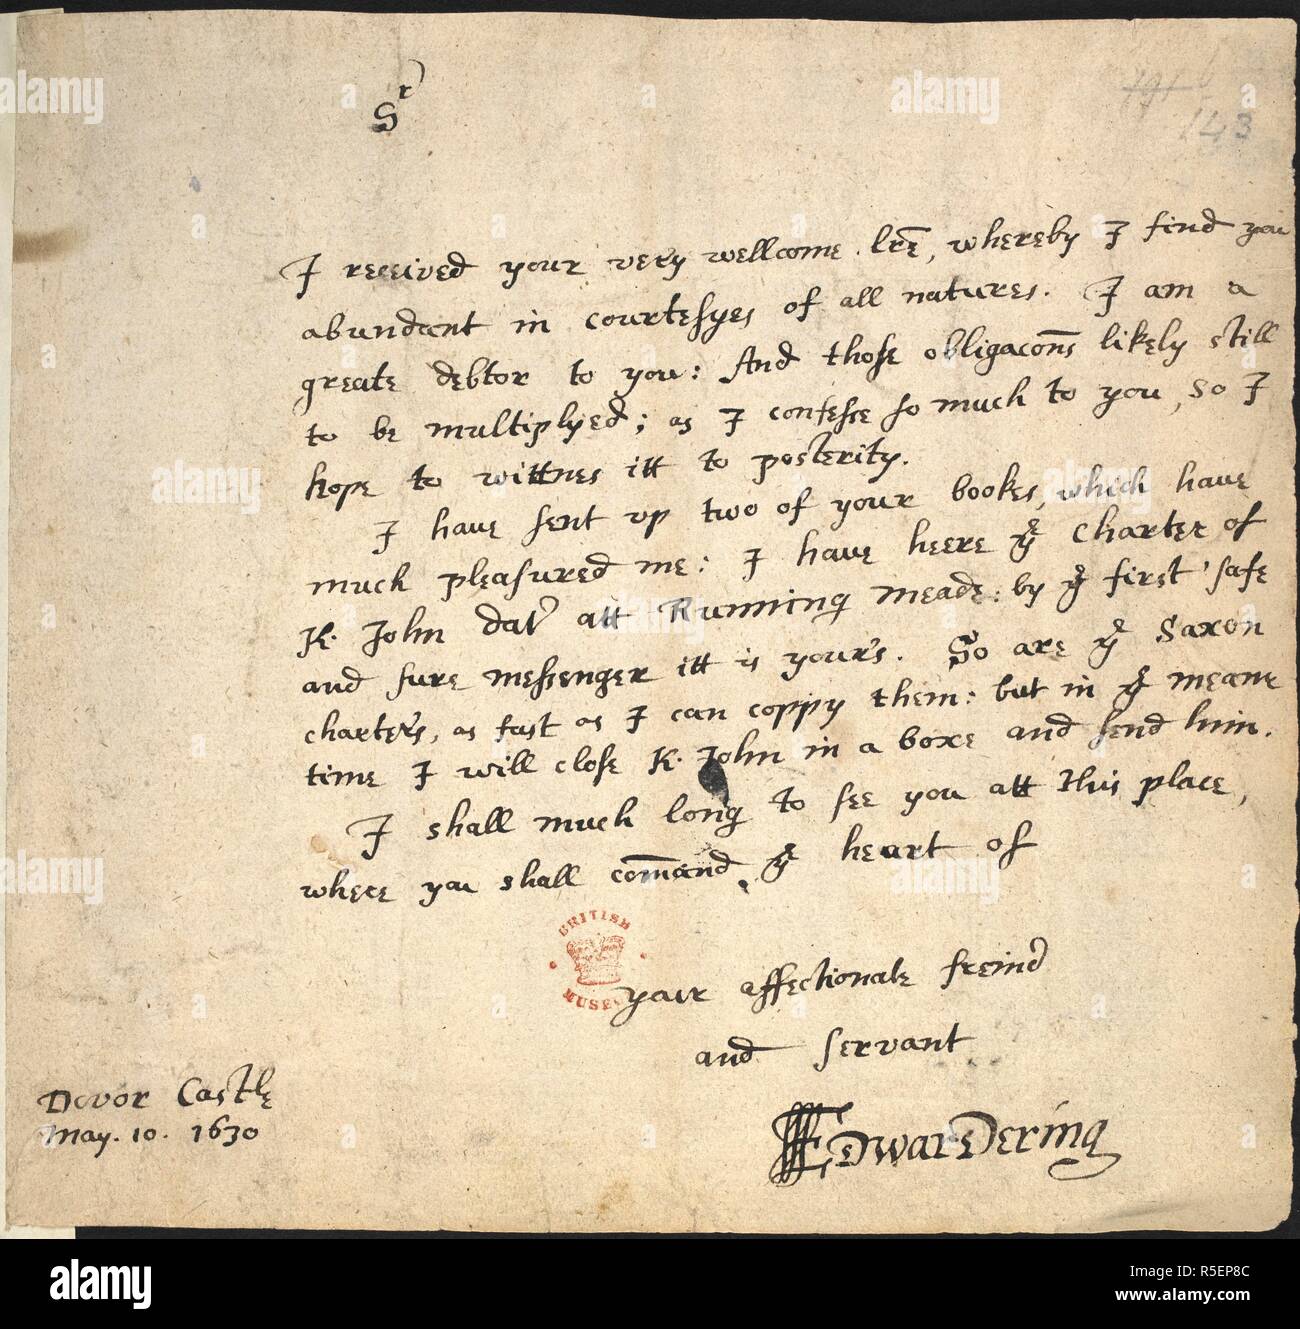 Sr
791 6
143
I received your very wellcome lre, whereby I find you
abundant in courtesyes of all natures. I am a
greate debtor to you: And those obligacons likely still
to be multiplyed; as I confesse so much to you, so I
hope to wittnes itt to posterity.
I have sent up two of your bookes, which have
much pleasured me: I have heere ye charter of
K. John dat. att Running Meade: by ye first safe
and sure messenger itt is your's. So are ye Saxon
charters, as fast as I can coppy them: but in ye meane
time I will close K. John in a boxe and send him.
I shall much long to see you att this place,
where you shall comand ye heart of
BRITISH
MUSE
your affectionate freind
and servant
Dover Castle
May. 10. 1630
Edward Dering
alamy
Image ID: R5EP8C
www.alamy.com